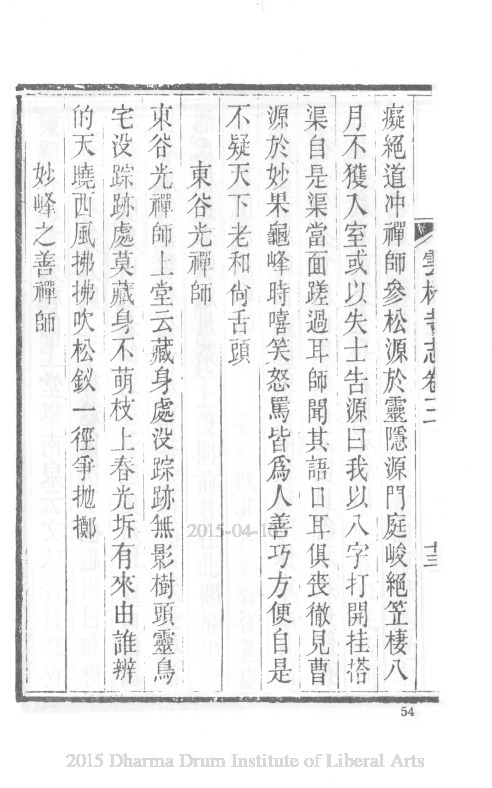 癡絕道冲禪師參松源於靈隱源門庭峻絕笠棲八
月不獲入室或以失士告源曰我以八字打開挂搭
渠自是渠當面蹉過耳師聞其語口耳俱喪徹見曹
源於妙果龜峰時嘻笑怒罵皆爲人善巧方便自是
不疑天下老和尙舌頭
東谷光禪師
東谷光禪師上堂云藏身處沒踪跡無影樹頭靈鳥
宅没踪跡處莫藏身不萌枝上春光坼有來由誰辨
的天曉西風拂拂吹松釵一徑爭抛擲
妙峰之善禪師
雲林寺志卷三
十三
2015-04-16
54
2015 Dharma Drum Institute of Liberal Arts